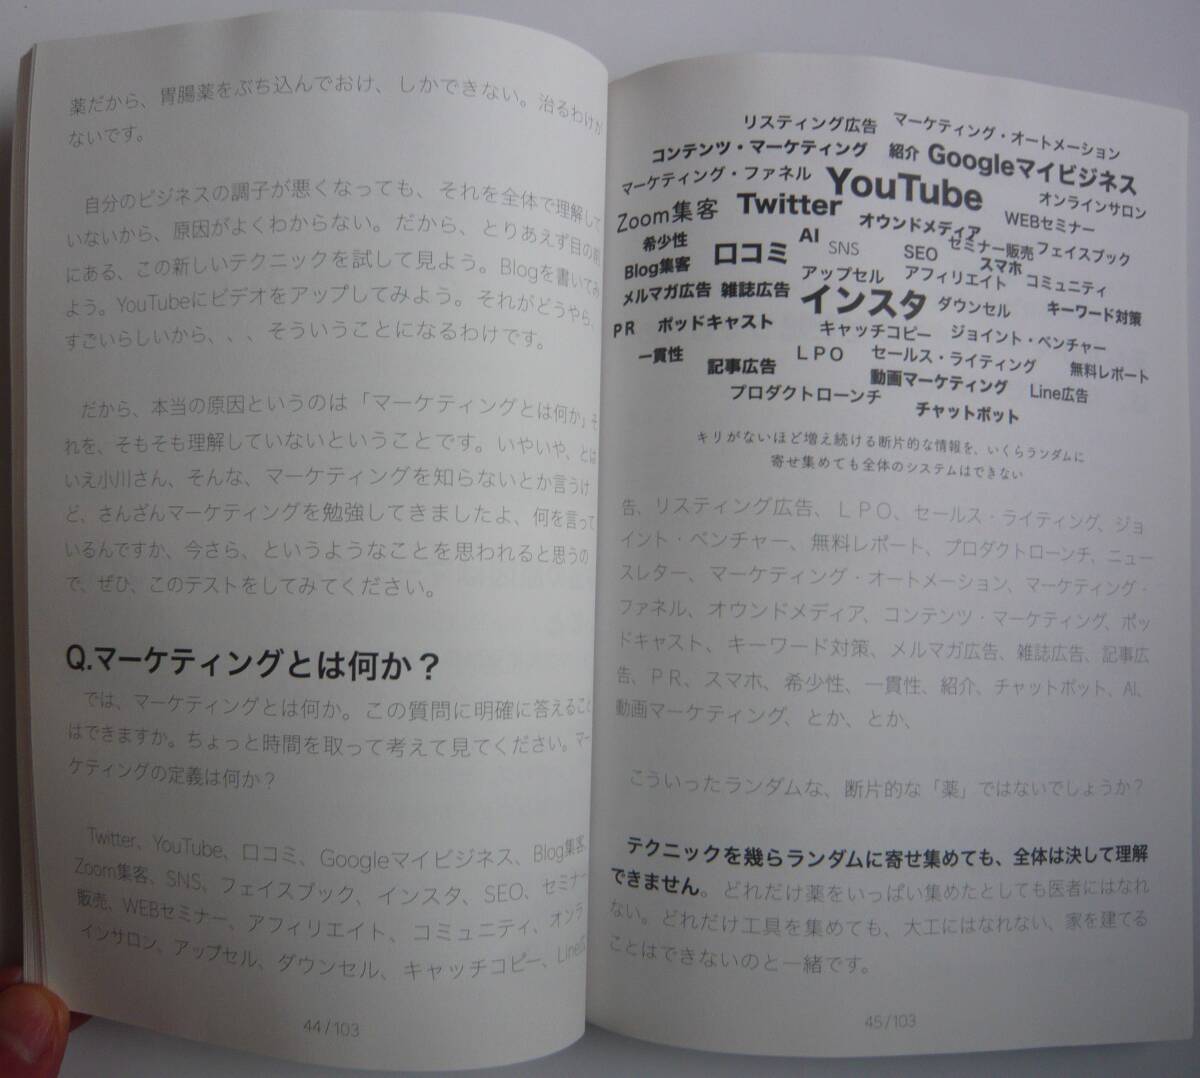 薬だから、胃腸薬をぶち込んでおけ、しかできない。治るわけが
ないです。
自分のビジネスの調子が悪くなっても、それを全体で理解して
いないから、原因がよくわからない。だから、とりあえず目の前
にある、この新しいテクニックを試して見よう。Blogを書いてみ
よう。YouTubeにビデオをアップしてみよう。それがどうやら、
すごいらしいから、、、そういうことになるわけです。
だから、本当の原因というのは「マーケティングとは何か」そ
れを、そもそも理解していないということです。いやいや、とは
いえ小川さん、そんな、マーケティングを知らないとか言うけ
ど、さんざんマーケティングを勉強してきましたよ、何を言って
いるんですか、今さら、というようなことを思われると思うの
で、ぜひ、このテストをしてみてください。
Q.マーケティングとは何か？
では、マーケティングとは何か。この質問に明確に答えること
はできますか。ちょっと時間を取って考えて見てください。マー
ケティングの定義は何か？
Twitter、YouTube、口コミ、Googleマイビジネス、Blog集客、
Zoom集客、SNS、フェイスブック、インスタ、SEO、セミナー
販売、WEBセミナー、アフィリエイト、コミュニティ、オンラ
インサロン、アップセル、ダウンセル、キャッチコピー、Line広
44/103
リスティング広告 マーケティング・オートメーション
コンテンツ・マーケティング 紹介 Googleマイビジネス
マーケティング・ファネル YouTube オンラインサロン
Zoom集客 Twitter オウンドメディア WEBセミナー
希少性 口コミ AI SNS SEO セミナー販売 フェイスブック
Blog集客 アップセル アフィリエイト スマホ コミュニティ
メルマガ広告 雑誌広告 インスタ ダウンセル キーワード対策
PR ポッドキャスト キャッチコピー ジョイント・ベンチャー
一貫性 記事広告 LPO セールス・ライティング 無料レポート
プロダクトローンチ 動画マーケティング Line広告
チャットボット
キリがないほど増え続ける断片的な情報を、いくらランダムに
寄せ集めても全体のシステムはできない
告、リスティング広告、LPO、セールス・ライティング、ジョ
イント・ベンチャー、無料レポート、プロダクトローンチ、ニュー
スレター、マーケティング・オートメーション、マーケティング・
ファネル、オウンドメディア、コンテンツ・マーケティング、ポッ
ドキャスト、キーワード対策、メルマガ広告、雑誌広告、記事広
告、PR、スマホ、希少性、一貫性、紹介、チャットボット、AI、
動画マーケティング、とか、とか、
こういったランダムな、断片的な「薬」ではないでしょうか？
テクニックを幾らランダムに寄せ集めても、全体は決して理解
できません。どれだけ薬をいっぱい集めたとしても医者にはなれ
ない。どれだけ工具を集めても、大工にはなれない、家を建てる
ことはできないのと一緒です。
45/103